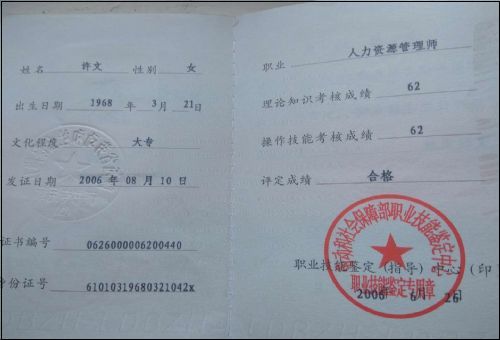 姓名 许文 性别 女
出生日期 1968 年 3 月 21日
文化程度 大专
发证日期 2006 年 08 月 10 日
证书编号 0626000006200440
身份证号 61010319680321042x
职业 人力资源管理师
理论知识考核成绩 62
操作技能考核成绩 62
评定成绩 合格
劳动和社会保障部职业技能鉴定中心
职业技能鉴定专用章
职业技能鉴定（指导）中心（印
2006年 6月 26